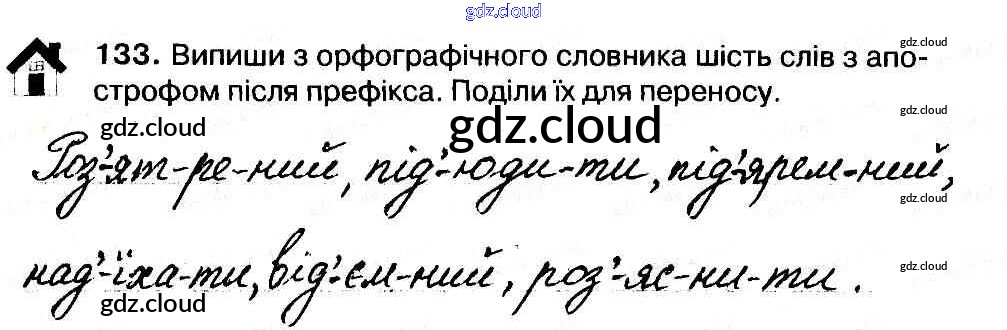 gdz.cloud
133. Випиши з орфографічного словника шість слів з апо-
gdz.cloud
строфом після префікса. Поділи їх для переносу.
gdz.cloud
gdz.cloud
gdz.cloud
Роз'-ят-ре-ний, під'-юди-ти, під'-ярем-ний,
gdz.cloud
над'-їха-ти, від'-єм-ний, роз'-яс-ни-ти.
gdz.cloud
gdz.cloud